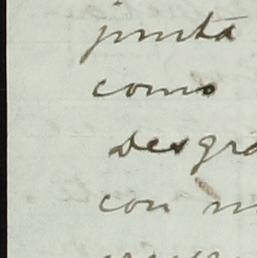 junta
como
desgra
con m